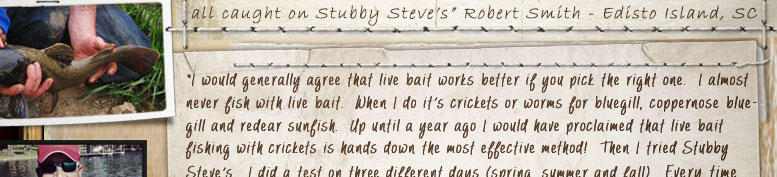 all caught on Stubby Steve's" Robert Smith - Edisto Island, SC
"I would generally agree that live bait works better if you pick the right one. I almost
never fish with live bait. When I do it's crickets or worms for bluegill, coppernose blue-
gill and redear sunfish. Up until a year ago I would have proclaimed that live bait
fishing with crickets is hands down the most effective method! Then I tried Stubby
Steve's. I did a test on three different days (spring, summer and fall). Every time